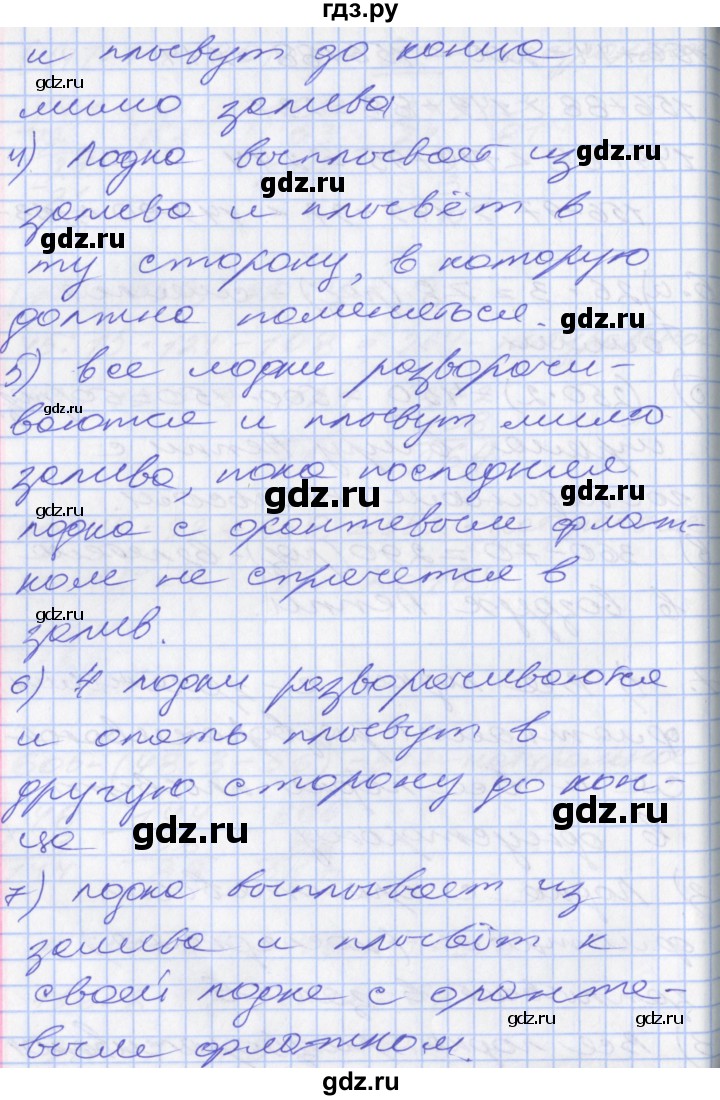 гдз.ру
и плывут до конца
gdz.ru
мимо залива
4) Лодка выплывает из
gdz.ru
gdz.ru
залива и плывёт в
gdz.ru
ту сторону, в которую
должна поменяться.
gdz.ru
5) все лодки разворачи-
gdz.ru
ваются и плывут мимо
залива, пока последняя
gdz.ru
gdz.ru
gdz.ru
лодка с оранжевым флаж-
ком не встречется в
gdz.ru
залив.
6) 4 лодки разворачиваются
и опять плывут в
другую сторону до кон-
gdz.ru
gdz.ru
ца
7) лодка выплывает из
залива и плывёт к
своей лодке с оранже-
gdz.ru
gdz.ru
вым флажком.
gdz.ru